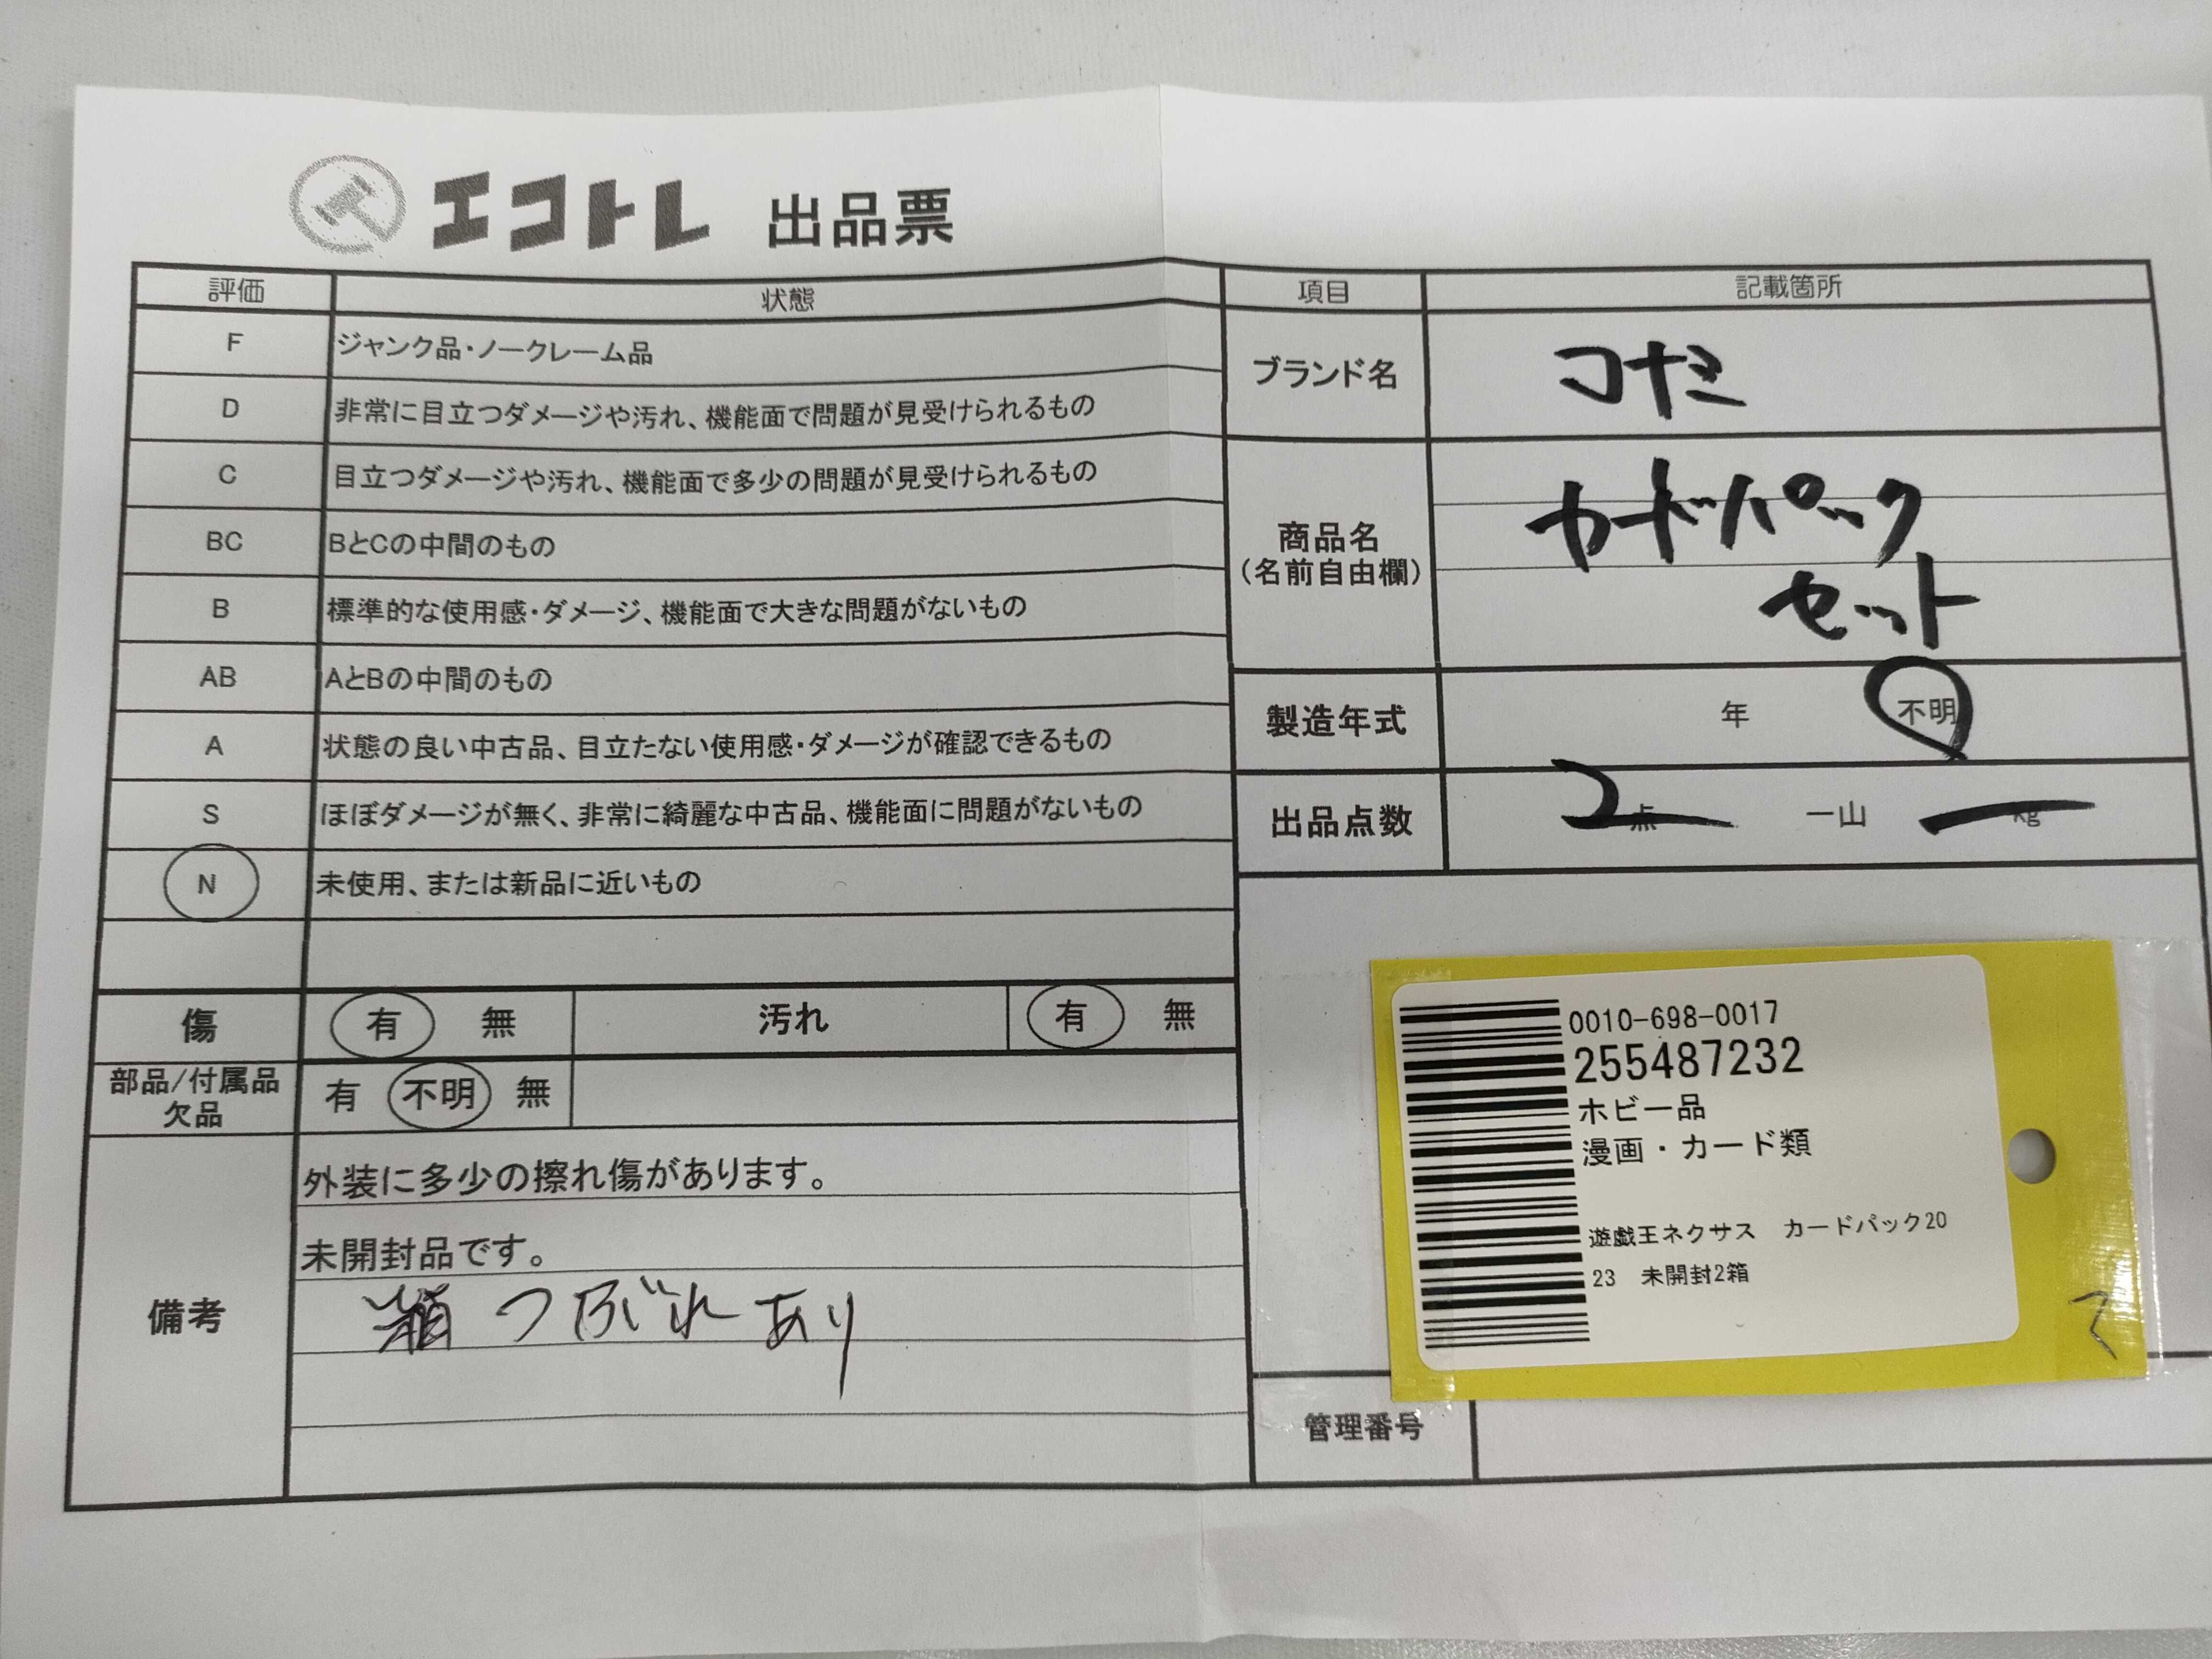 エコトレ 出品票
評価 状態
F ジャンク品・ノークレーム品
D 非常に目立つダメージや汚れ、機能面で問題が見受けられるもの
C 目立つダメージや汚れ、機能面で多少の問題が見受けられるもの
BC BとCの中間のもの
B 標準的な使用感・ダメージ、機能面で大きな問題がないもの
AB AとBの中間のもの
A 状態の良い中古品、目立たない使用感・ダメージが確認できるもの
S ほぼダメージが無く、非常に綺麗な中古品、機能面に問題がないもの
N 未使用、または新品に近いもの
傷 有 無 汚れ 有 無
部品/付属品
欠品
有 不明 無
備考
外装に多少の擦れ傷があります。
未開封品です。
箱つぶれあり
項目 記載箇所
ブランド名 コナミ
商品名
(名前自由欄)
カードパック
セット
製造年式 年 不明
出品点数 2点 一山 kg
0010-698-0017
255487232
ホビー品
漫画・カード類
遊戯王ネクサス カードパック20
23 未開封2箱
管理番号